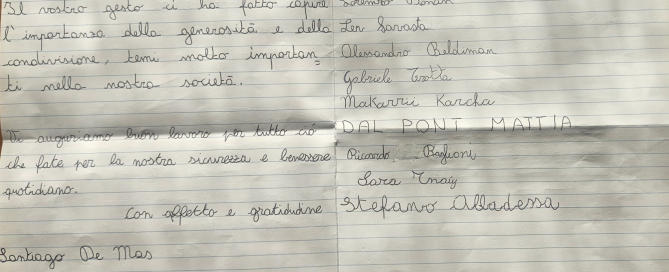 Il vostro gesto ci ha fatto capire
l'importanza della generosità e della
condivisione, temi molto importan=
ti nella nostra società.
Vi auguriamo buon lavoro per tutto ciò
che fate per la nostra sicurezza e benessere
quotidiano.
Con affetto e gratidudine
Santiago De Mas
Len Savasta
Alessandro Beldiman
Gabriele Trotta
Makarrii Karcha
DAL PONT MATTIA
Riccardo Baglioni
Sara
Stefano Alladessa